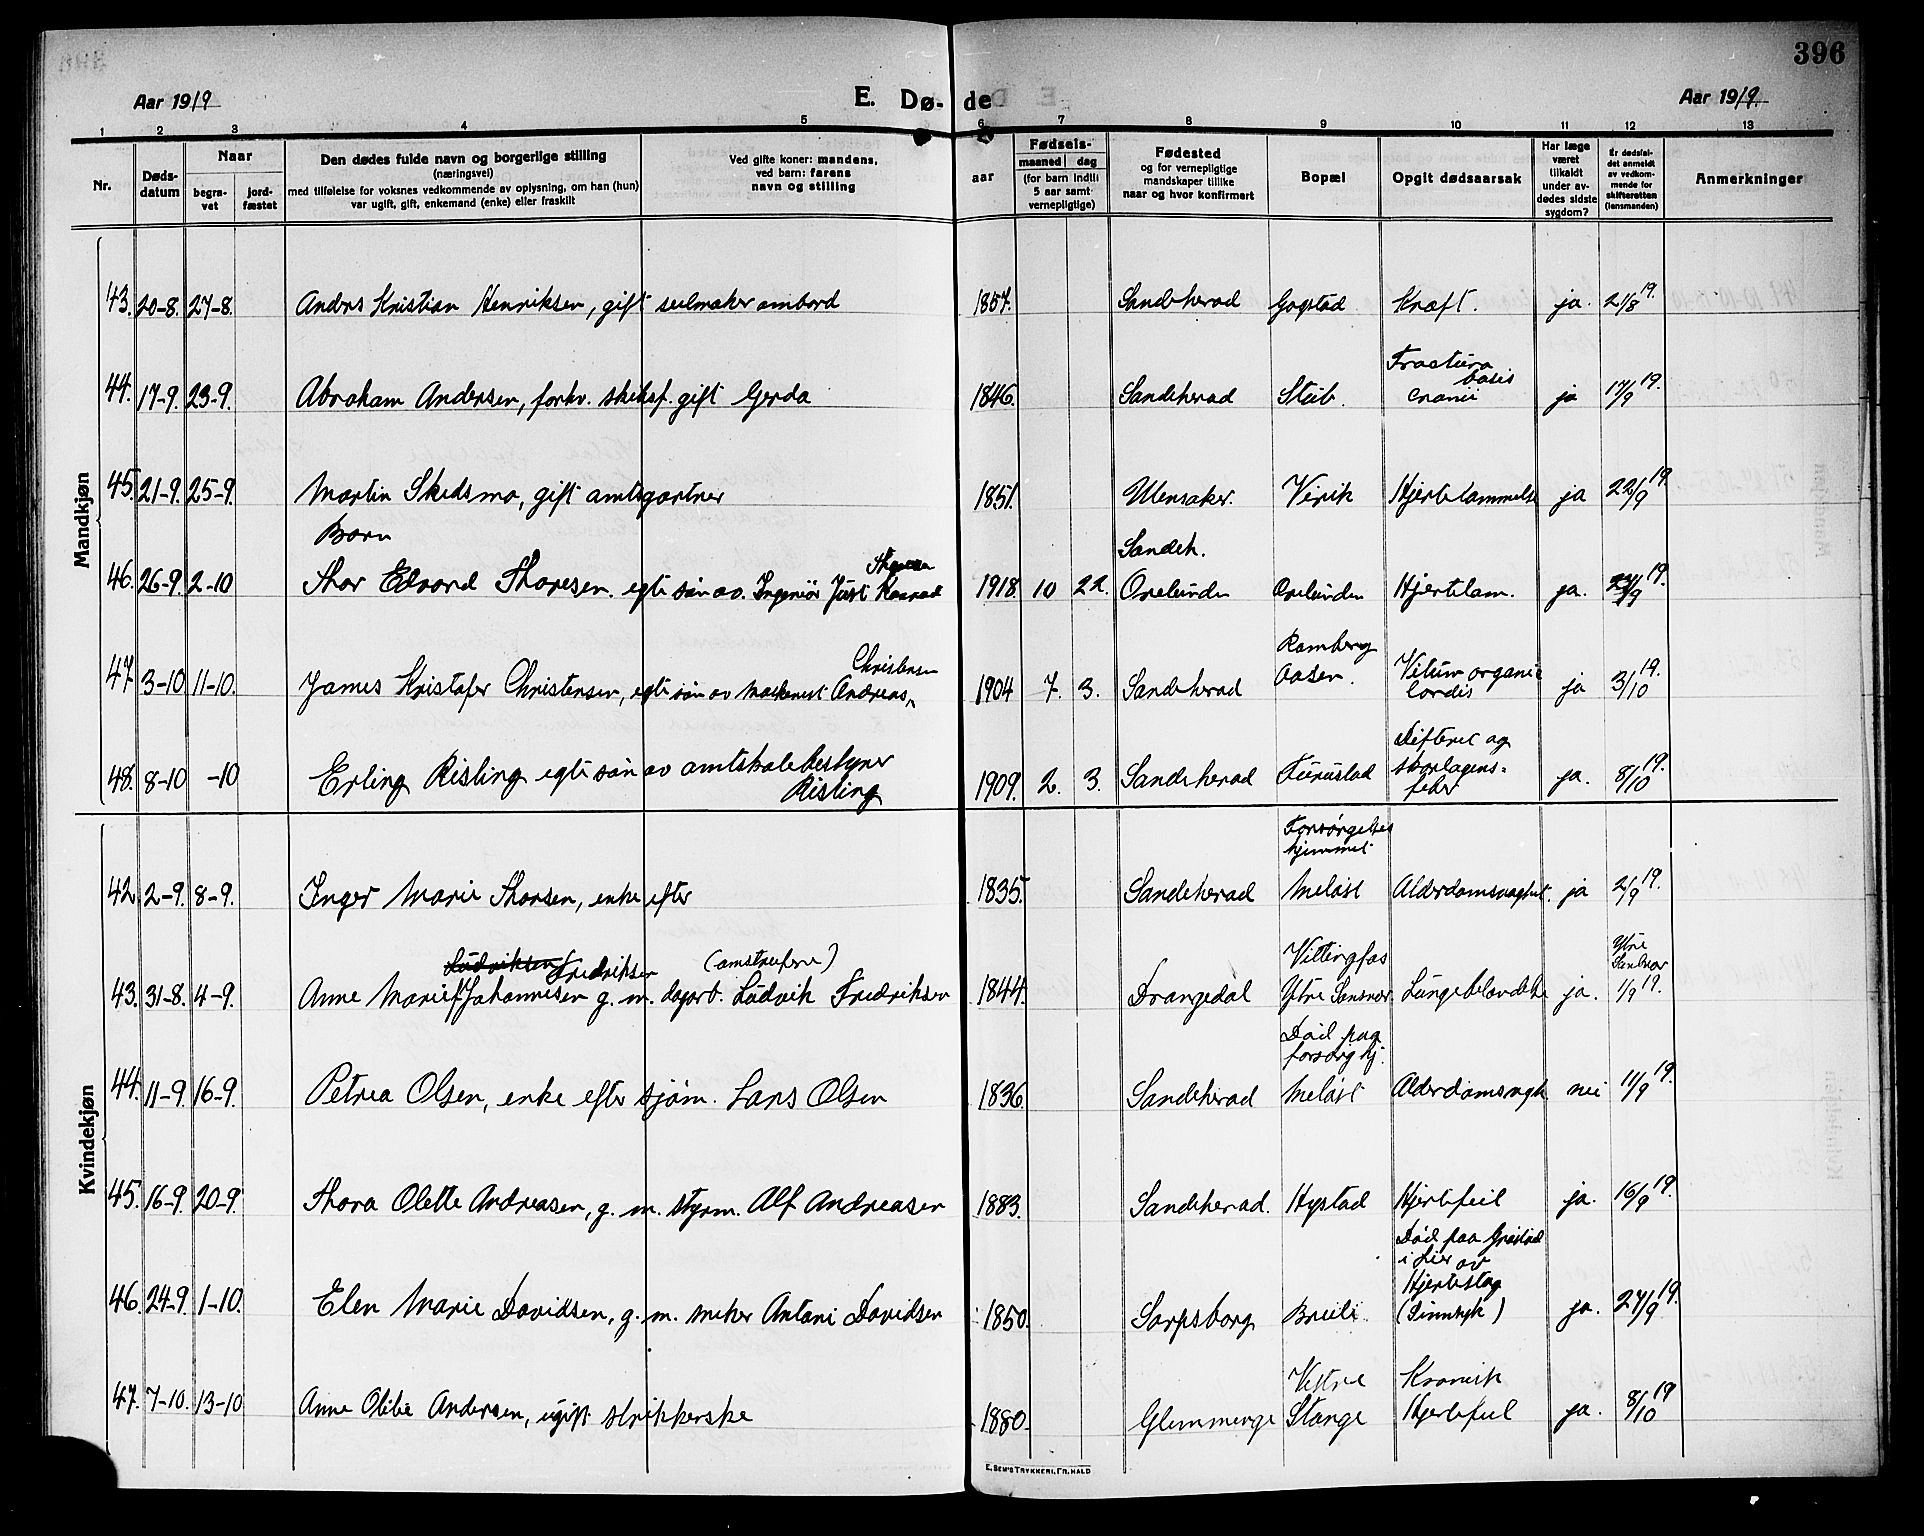 396
Aar 1919
E. Dø- de
Aar 1919.
1 2 3 4 5 6 7 8 9 10 11 12 13
Nr.
Døds-
datum
Naar
begra-
vet
jord-
fæstet
Den dødes fulde navn og borgerlige stilling
(næringsvei)
med tilføielse for voksnes vedkommende av oplysning, om han (hun)
var ugift, gift, enkemand (enke) eller fraskilt
Ved gifte koner: mandens,
ved barn: farens
navn og stilling
Fødsels-
aar
maaned dag
(for barn indtil
5 aar samt
vernepligtige)
Fødested
og for vernepligtige
mandskaper tillike
naar og hvor konfirmert
Bopæl
Opgit dødsaarsak
Har læge
været
tilkaldt
under av-
dødes sidste
sygdom?
Er dødsfal-
det anmeldt
av vedkom-
mende for
skifteretten
(lensmanden)
Anmerkninger
Mandkjøn
43. 20-8. 27-8. Anders Kristian Henriksen, gift seilmaker ombord 1857. Sandeherad Gogstad Kræft. ja. 21/8 19.
Fractura
basis
44. 17-9. 23-9. Abraham Andersen, forhv. skibsf. gift Gerda 1846. Sandeherad Stub. cranii ja 17/9 19.
45. 21-9. 25-9. Martin Skedsmo, gift amtsgartner 1851. Ulensaker. Virik Hjertelammelse ja 22/9 19
Barn Sandeh.
Thoresen
46. 26-9. 2-10 Thor Edvard Thoresen. egte søn av. Ingeniør Just Konrad 1918 10 22. Orelunden Orelunden Hjertelam. ja. /9 19.
Christensen Ramberg
47 3-10 11-10. James Kristofer Christensen, egte søn av maskinist Andreas 1904 7. 3. Sandeherad aasen. Vitium organic
cordis ja 3/10 19.
Difterit og
48. 8-10 -10 Erling Risting egte søn av amtskolebestyrer
Risting 1909. 2. 3. Sandeherad Furustad skarlagens-
feber ja. 8/10 19.
Kvindekjøn
Forsørgelses
hjemmet
42 2-9. 8-9. Inger Marie Thorsen, enke efter 1835. Sandeherad Meløst Alderdomsvaghet. ja 2/9 19.
Ludviksen Fredriksen (omstreifere) Vittingfos Ytre
Sandsvær
43. 31-8. 4-9. Anne Marie Johannesen g. m. dagarb. Ludvik Fredriksen 1844. Drangedal Ytre Sansvær Lungebetændelse ja. 1/9 19.
Død paa
forsørg hj.
44. 11-9. 16-9. Petrea Olsen, enke efter sjøm. Lars Olsen 1836. Sandeherad Meløst Alderdomsvagh nei 11/9 19.
45. 16-9. 20-9. Thora Olette Andreasen, g. m. styrm. Alf Andreasen 1883. Sandeherad. Hystad Hjertefeil ja. 16/9 19.
Død paa Grøstad
i Lier av
Hjerteslag
46. 24-9. 1-10. Elen Marie Davidsen, g. m. Antoni Davidsen 1850. Sarpsborg Breili. ja. 24/9 19.
Vestre Kronisk
47. 7-10. 13-10 Anne Olibie Andersen, ugift strikkerske 1880. Glemminge Stange Hjertefeil ja. 8/10 19
E. Sem's Trykkeri, Fr. hald